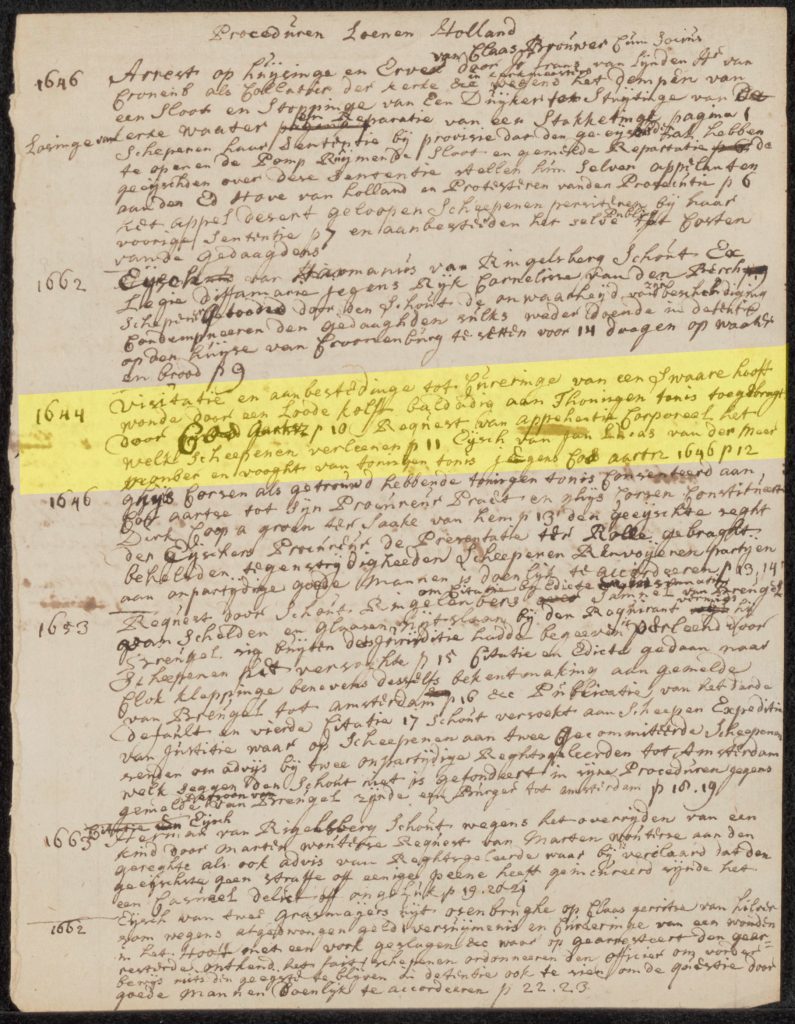 Proceduren Loenen Holland
van Claas Brouwer Cum Sociis
1646 Arrest op huijsinge en Erve door Jr Frans van Lijnden Hr van
Cronenb als Collatoor der kerke &c wegens het dempen van
een Sloot en Stoppinge van Een Duijker tot Stuijtinge van
Losinge van
waater en Reparatie van een Stakketting pagina 1
Schepenen haar Sententie bij provisie dat den ge zal hebben
te openen de Pomp Ruijmende Sloot en gemelde Reparatie de
geeijschden over dese Sententie stellen hun selven appellanten
aan den Ed Hove van holland en Protesteren vanden Prosecutie p 6
het appel desert geloopen Scheepenen persisteren bij haar
voorige Sententie p 7 en aanbesteden het selve Publ tot Costen
vande gedaagdens
1662 Eijsch van Harmanus van Ringelsberg Schout Ex
Legie Diffamarie tegens Rijk Cornelisse van den Birch
Schepens door den Schout de onwaarheijd beschuldiging
Condempneeren den gedaaghden sulks weder doende in detentie
op den huijse van Croonenburg te setten voor 14 daagen op waater
en brood p 9
1644 Visitatie en aanbestedinge tot Cureringe van een Swaare hooft
wonde door een Loode kolff baldadig aan Thoningen tonis toegebragt
door Cos p 10 Request van apprehentie Corporeel het
welk Scheepenen verleenen p 11 Eijsch van Jan Lucas van der Meer
Momber en vooght van toningen tonis Jegens Cos aartsz 1646 p 12
1646 ghijs Corsen als getrouwd hebbende toningen tonis Consenteerd aan
Cos aartse tot sijn Procureur Praet en ghijs Corsen Constitueert
Dirk Loop a groen ter Saake van hem p 13 den geeijschte seght
den Eijschers Procureur de Presentatie ter Rolle gebraght
behelsden tegenstrijdigheeden Scheepenen Renvoijeren Partijen
aan onpartijdige goede mannen is doenlijk te accordeeren p 13, 14
om Citatie bij Edicte
1653 Request door Schout Ringelenberg Samuel van Brengel
van Schelden en glaasen bij den Requirant
Brengel sig buijten de Jurisditie hadde begeeven verleend door
Scheepenen het versochte p 15 Citatie en Edicte gedaan naar
Clok kleppinge benevens desselfs bekentmaking aan gemelde
van Brengel tot amsterdam p 16 &c Publicatie van het derde
defahlt en vierde Citatie 17 Schout versoekt aan Scheepen Expeditie
van Justitie waar op Scheepenen aan twee Gecommitteerde Scheepenen
senden om advijs bij twee onpartijdige Reghtsgeleerden tot Amsterdam
welk seggen den Schout niet is gefondeert in sijne Proceduren jegens
gemelde van Brengel zijnde een Burger tot amsterdam p 18.19
Eijsch
1665 Herman van Ringelsberg Schout wegens het overrijden van een
kind door Marten woutersse Request van Marten woutersse aan den
gereghte als ook advis van Reghtsgeleerde waar bij verclaard dat den
geeijschte geen straffe off eenige peene heeft gemeriteerd sijnde het
een Casueel delict off ongeluk p 19.20.21
1662 Eijsch van twee grasmaijers uijt osenbrughe op Claas gerritse van hilver
som wegens afgedwongen geld versuijmenis en Cureringe van een wonden
in het hooft met een vork geslagen &c waar op gearresteert den gear-
resteerde ontkend het fait scheepenen ordonneeren den officier om vorder
bewijs mits den geeijste te blijven in detentie ook te sien om de questie door
goede mannen doenlijk te accordeeren p 22.23